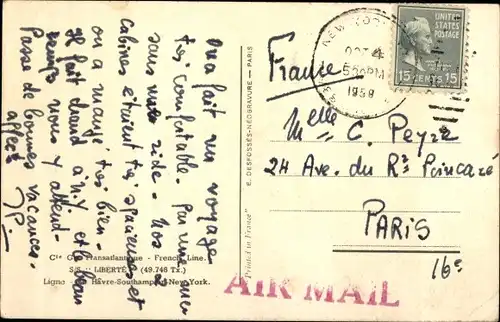 On a fait un voyage
très confortable. Pas une
sans ride. Nos 2
cabines étaient très spacieuses et
on a mangé très bien.
Il fait chaud à N.Y. et le beau
temps nous y attend.
Passe de bonnes vacances.
affect.
J.P.
Cie Gle Transatlantique - French Line.
S/S LIBERTÉ (49.746 Tx.)
Ligne Le Hâvre-Southampton-New-York.
E. DESFOSSÉS-NÉOGRAVURE — PARIS
"Printed in France"
NEW YORK
OCT 4
5 PM
1958
UNITED STATES POSTAGE
15 CENTS 15
France
Melle C. Peyre
24 Ave. du Rd Poincaré
PARIS
16e
AIR MAIL